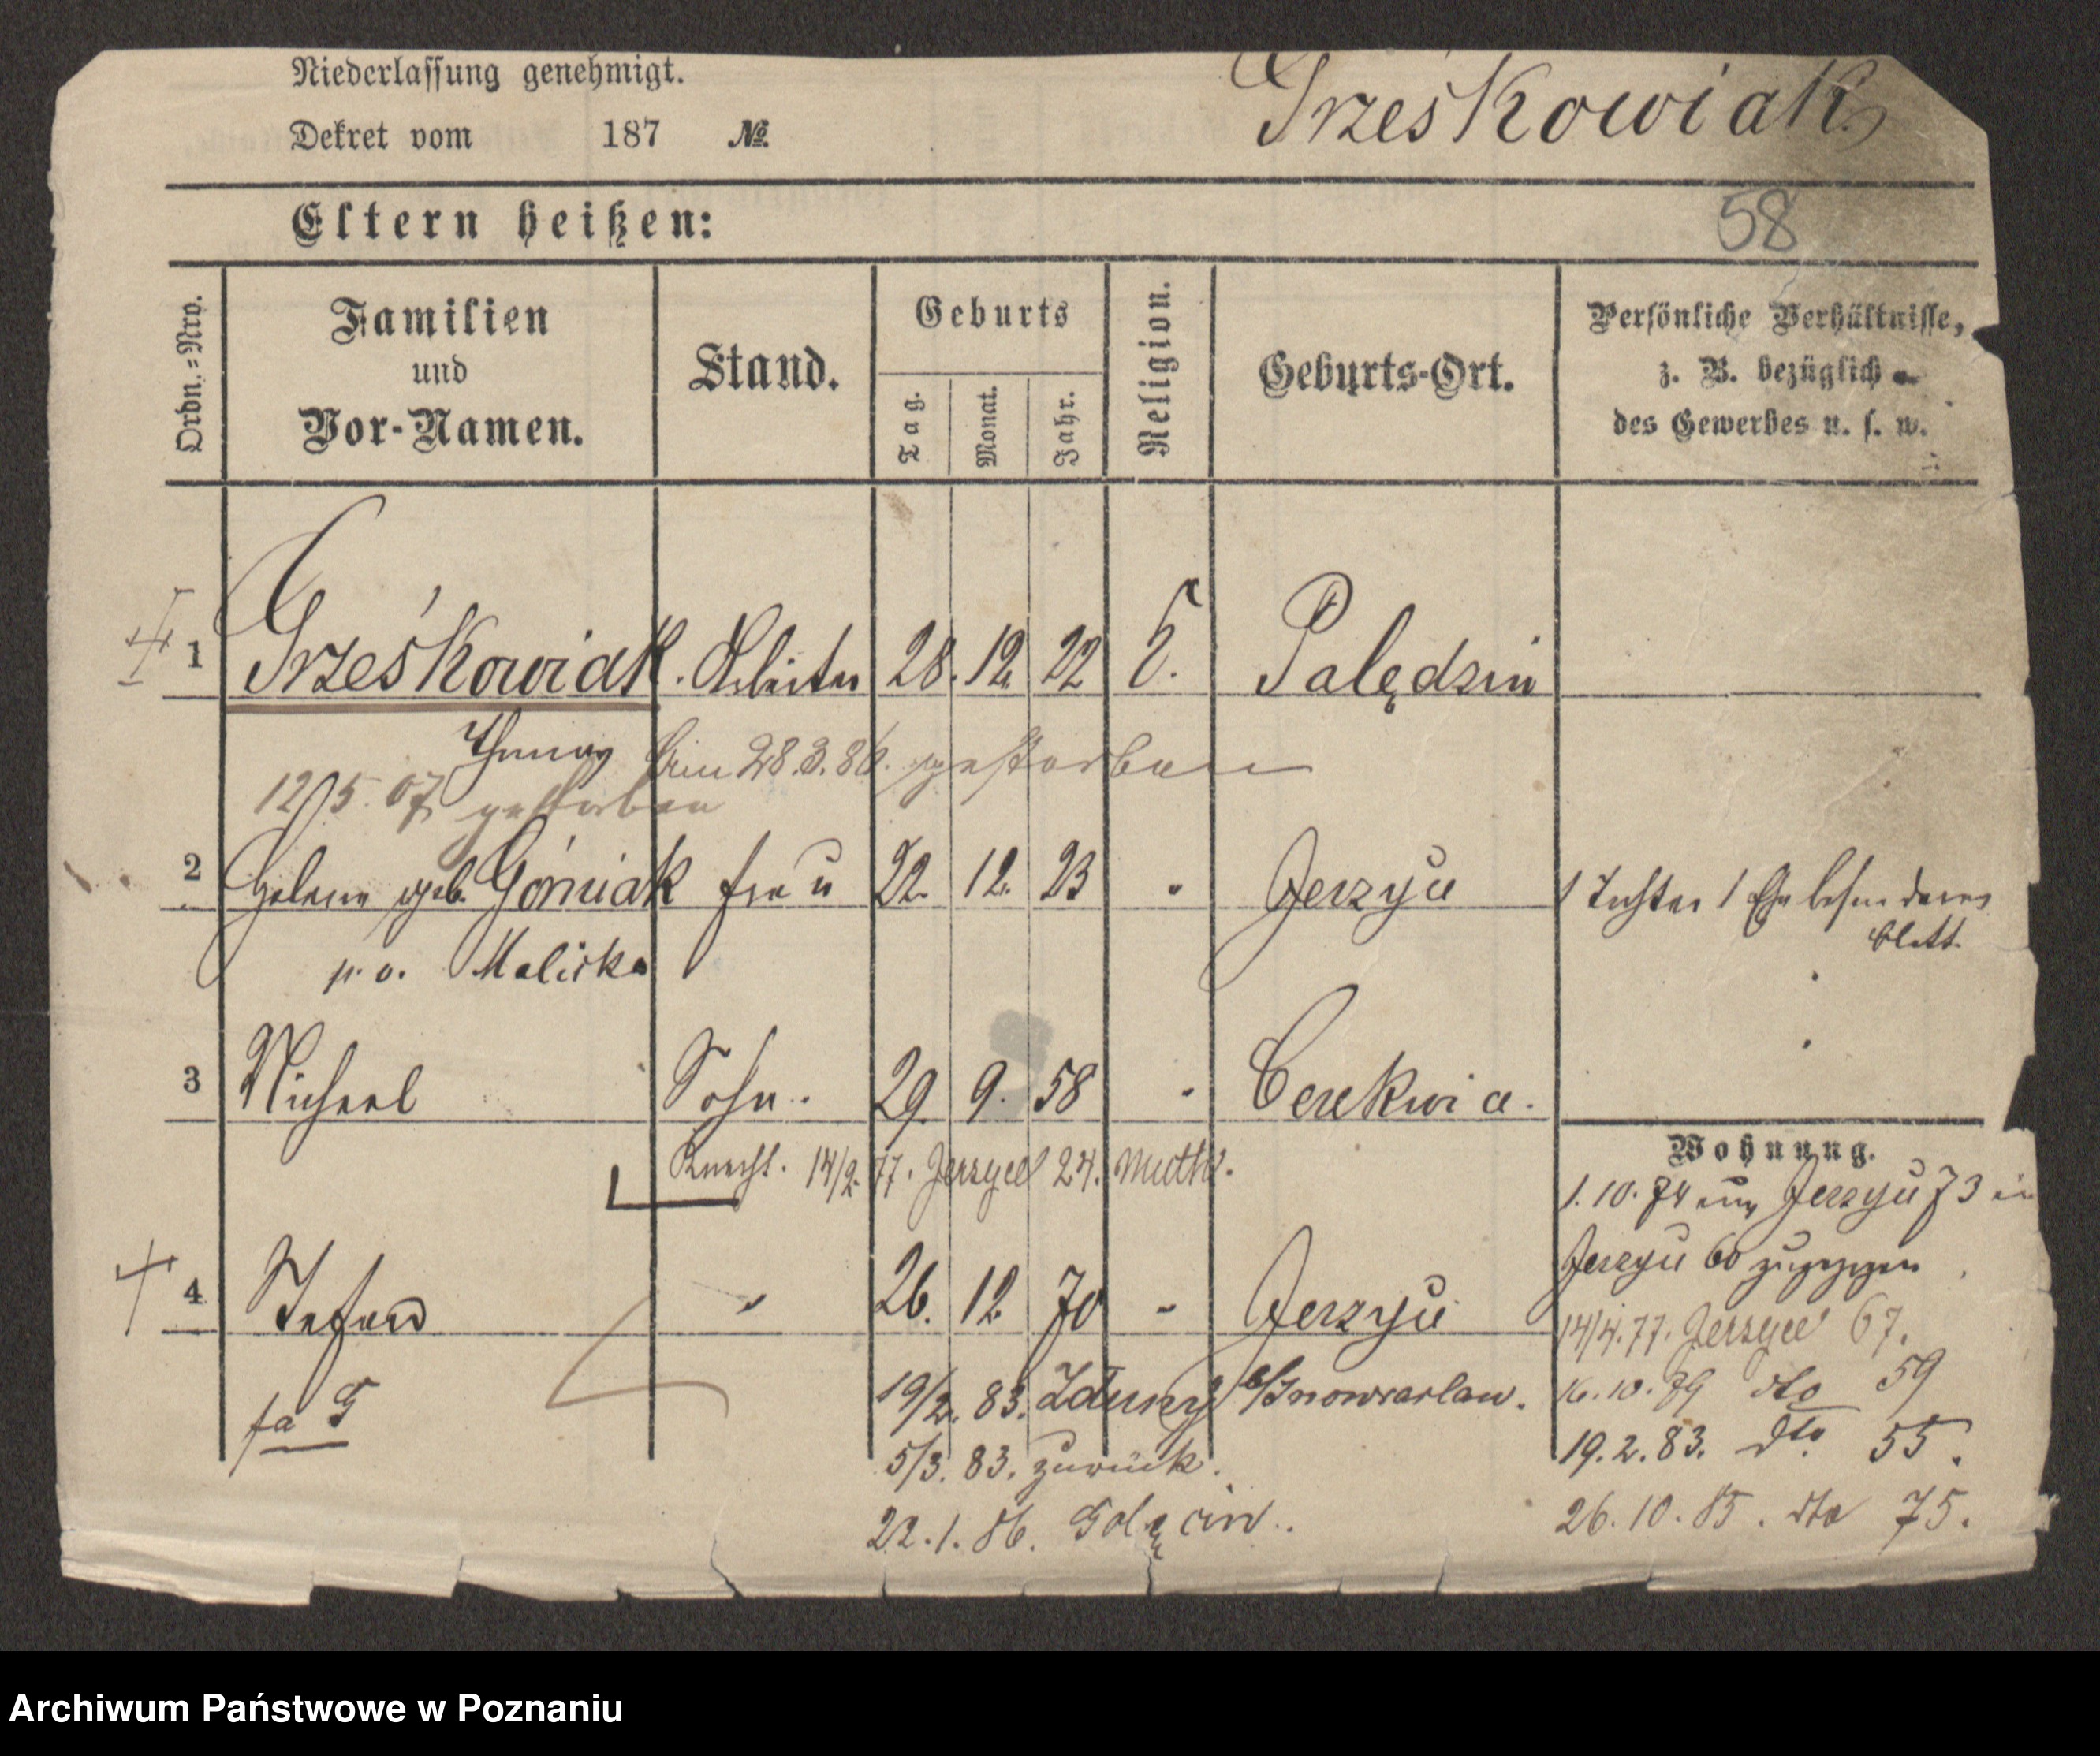 Niederlassung genehmigt.
Dekret vom 187 No.
Grześkowiak
Eltern heißen:
58
Ordn.-Nro.
Familien
und
Vor-Namen.
Stand.
Geburts
Tag.
Monat.
Jahr.
Religion.
Geburts-Ort.
Persönliche Verhältnisse,
z. B. bezüglich
des Gewerbes u. s. w.
1 Grześkowiak. Arbeiter 28. 12. 22 Palędzin
Thomas 28.3.86. gestorben
12/5. 07 gestorben
2 Helene geb. Górniak frau 22. 12. 23 " Jerzyce
p. v. Malicka
1 Tochter 1 Ehe besonderes
Blatt.
3 Michael Sohn. 29. 9. 58 " Cerekwica.
Knecht. 14/2. 77. Jerzyce 24.
Wohnung.
1. 10. 74 aus Jerzyce 73 in
Jerzyce 60 zugezogen
4 Josef " 26. 12. 70 " Jerzyce
14/4. 77. Jerzyce 67.
fa G
19/2. 83. Zduny b/Inowraclaw.
16. 10. 79 dto 59
5/3. 83. zurück.
19. 2. 83. dto 55.
22. 1. 86. Golęcin.
26. 10. 85. dto 75.
Archiwum Państwowe w Poznaniu